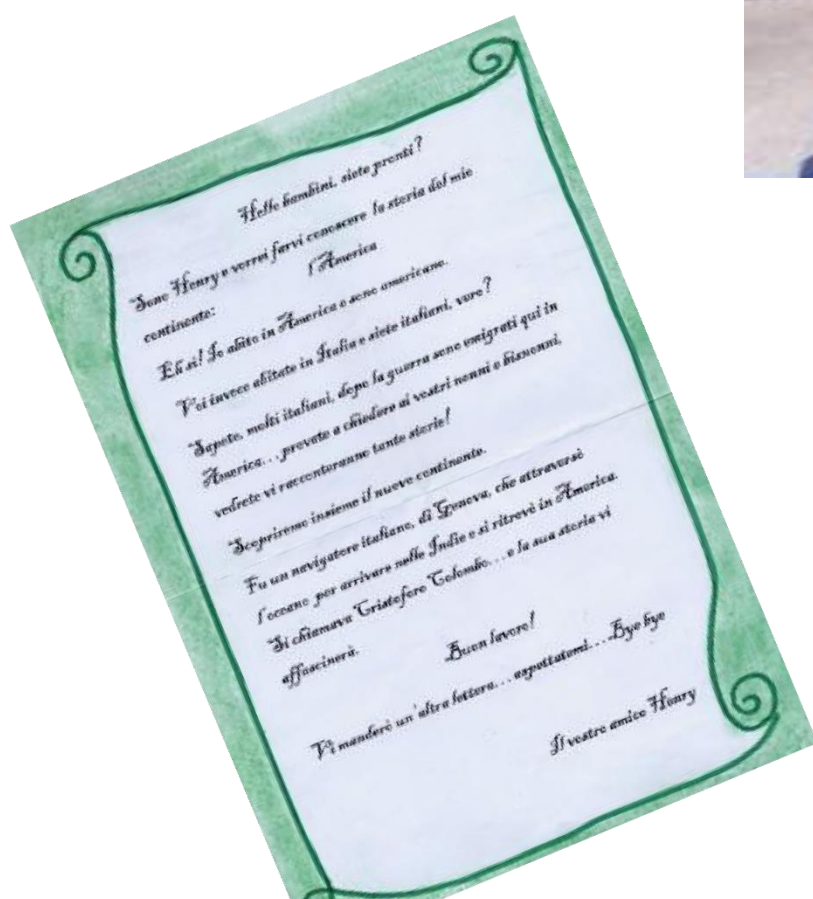 Hello bambini, siete pronti?
Sono Henry e vorrei farvi conoscere la storia del mio
continente: l'America
Eh si! Io abito in America e sono americano.
Voi invece abitate in Italia e siete italiani, vero?
Sapete, molti italiani, dopo la guerra sono emigrati qui in
America...provate a chiedere ai vostri nonni o bisnonni,
vedrete vi racconteranno tante storie!
Scopriremo insieme il nuovo continente.
Fu un navigatore italiano, di Genova, che attraversò
l'oceano per arrivare nelle Indie e si ritrovò in America.
Si chiamava Cristoforo Colombo...e la sua storia vi
affascinerà.
Buon lavoro!
Vi manderò un'altra lettera...aspettatemi...Bye bye
Il vostro amico Henry